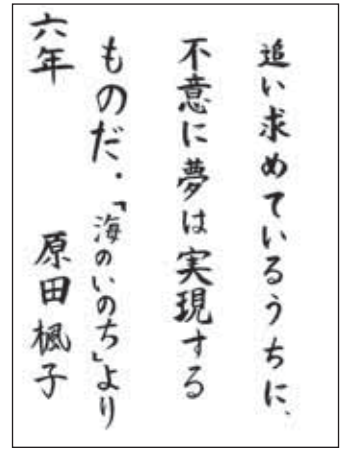 追い求めているうちに、
不意に夢は実現する
ものだ。「海のいのち」より
六年　原田楓子